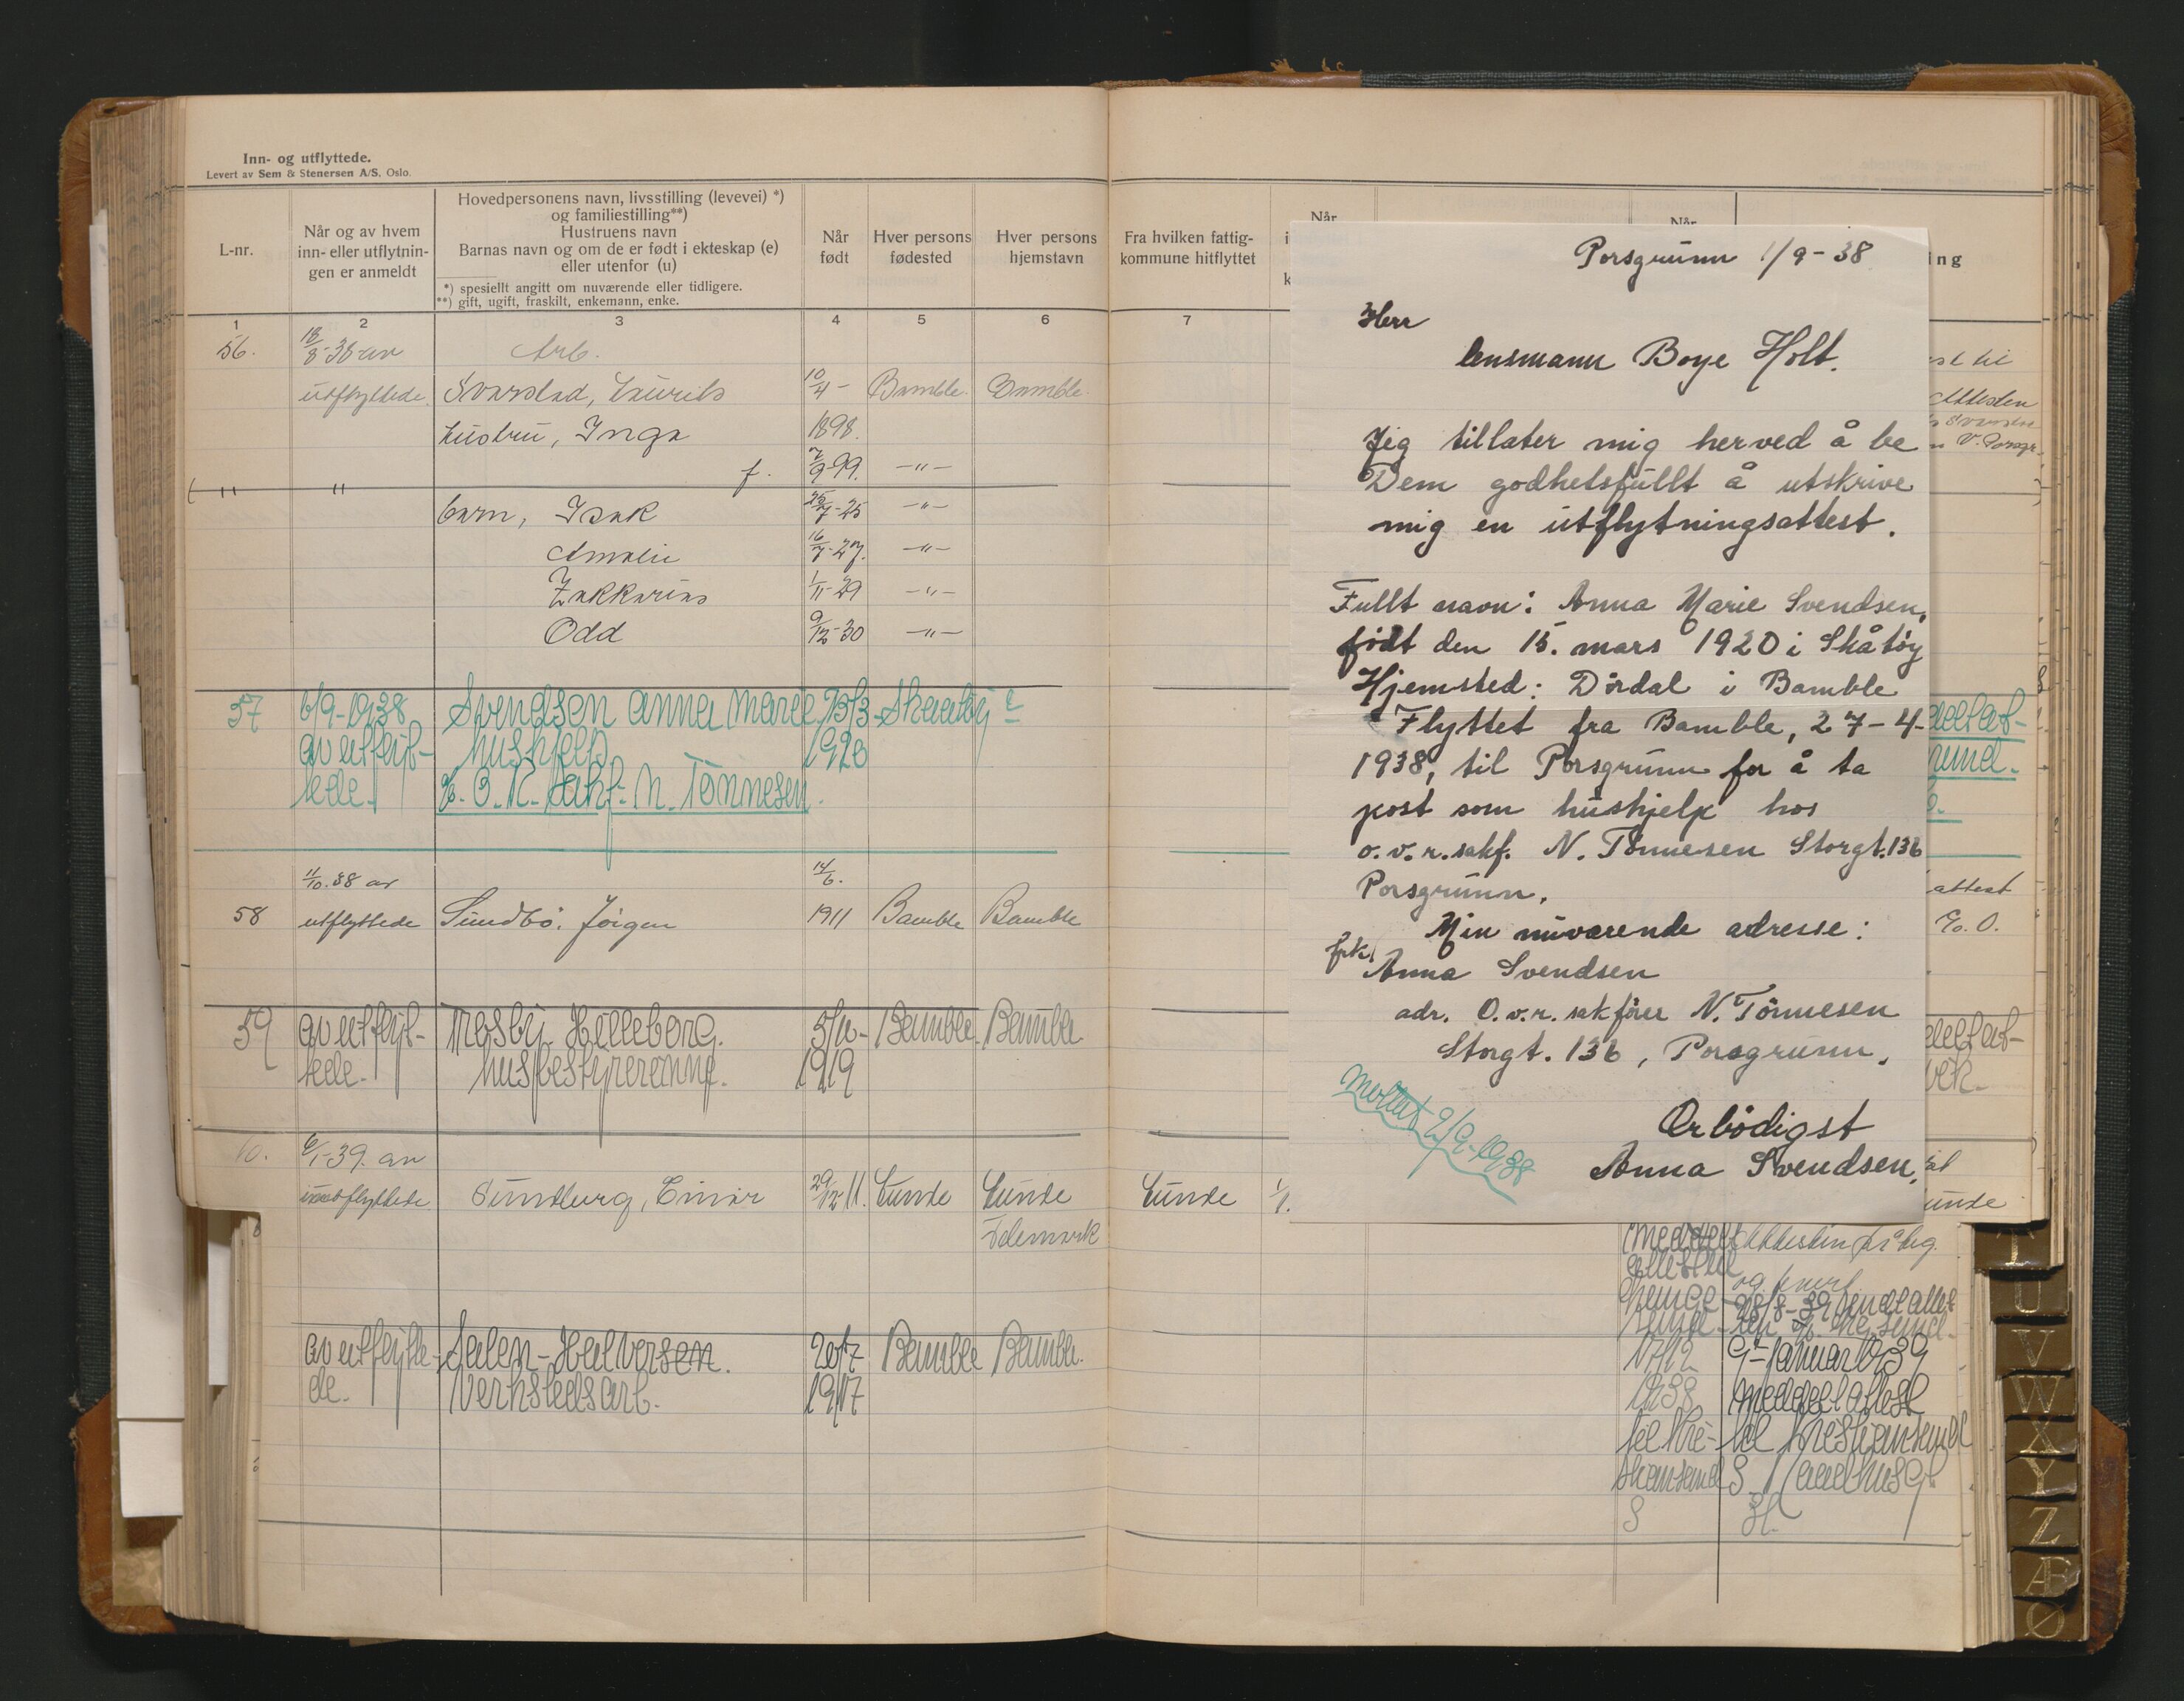 Inn- og utflyttede.
Levert av Sem & Stenersen A/S, Oslo.
L-nr.
Når og av hvem
inn- eller utflytnin-
gen er anmeldt
Hovedpersonens navn, livsstilling (levevei) *)
og familiestilling**)
Hustruens navn
Barnas navn og om de er født i ekteskap (e)
eller utenfor (u)
*) spesiellt angitt om nuværende eller tidligere.
**) gift, ugift, fraskilt, enkemann, enke.
Når
født
Hver persons
fødested
Hver persons
hjemstavn
Fra hvilken fattig-
kommune hitflyttet
Når
Når
ng
1 2 3 4 5 6 7
56. 18/8-38 av Arb.
utflyttede. Svarstad, Laurits 10/4- Bamble. Bamble.
hustru, Inga 1898.
f. 7/9-99. -"-
" "
barn, Isak 25/7-25 -"-
Amalie 16/7-27. -"-
Zakkarias 1/11-29 -"-
Odd 9/12-30 -"-
57 6/9-1938 Svendsen Anna Marie 15/3- Skaatøy
av utflyt- hushjelp 1920
tede. %. O.R. Sakf. N. Tønnesen.
11/10.38 av 14/6.
58 utflyttede Sundbö. Jörgen 1911 Bamble Bamble
59 av utflyt- Rosby Helleborg. 5/10- Bamble. Bamble.
tede. husbestyrerinne. 1919
60. 6/1-39. av
innflyttede Sundberg, Einar 29/12 11. Lunde Lunde Lunde 1/1.
Telemark
av utflytte- Salen-Halvorsen. 20/7 Bamble Bamble.
de. Verkstedsarb. 1917
Porsgrunn 1/9-38
Herr
lensmann Boye Holt.
Jeg tillater mig herved å be
Dem godhetsfullt å utskrive
mig en utflytningsattest.
Fullt navn: Anna Marie Svendsen,
født den 15. mars 1920 i Skåtöy
Hjemsted: Dördal i Bamble
Flyttet fra Bamble, 27-4-
1938, til Porsgrunn for å ta
post som hushjelp hos
o.v.r.sakf. N. Tönnesen Storgt.136
Porsgrunn.
Min nuværende adresse:
frk. Anna Svendsen
adr. O.v.r. sakförer N. Tönnesen
Storgt. 136, Porsgrunn.
Ærbödigst
Anna Svendsen.
Mottatt 2/9-1938
Attesten
V. Porsgr.
attest
%. O.
Lunde
Meddelt Attesten
og
28/8-39 sendt attes
17/12 9- januar 1939
1938 meddelt attest
til Kri- til Kristiansand
stiansand S. Raadhusgt.
S
T
U
V
W
X
Y
Z
Æ
Ø